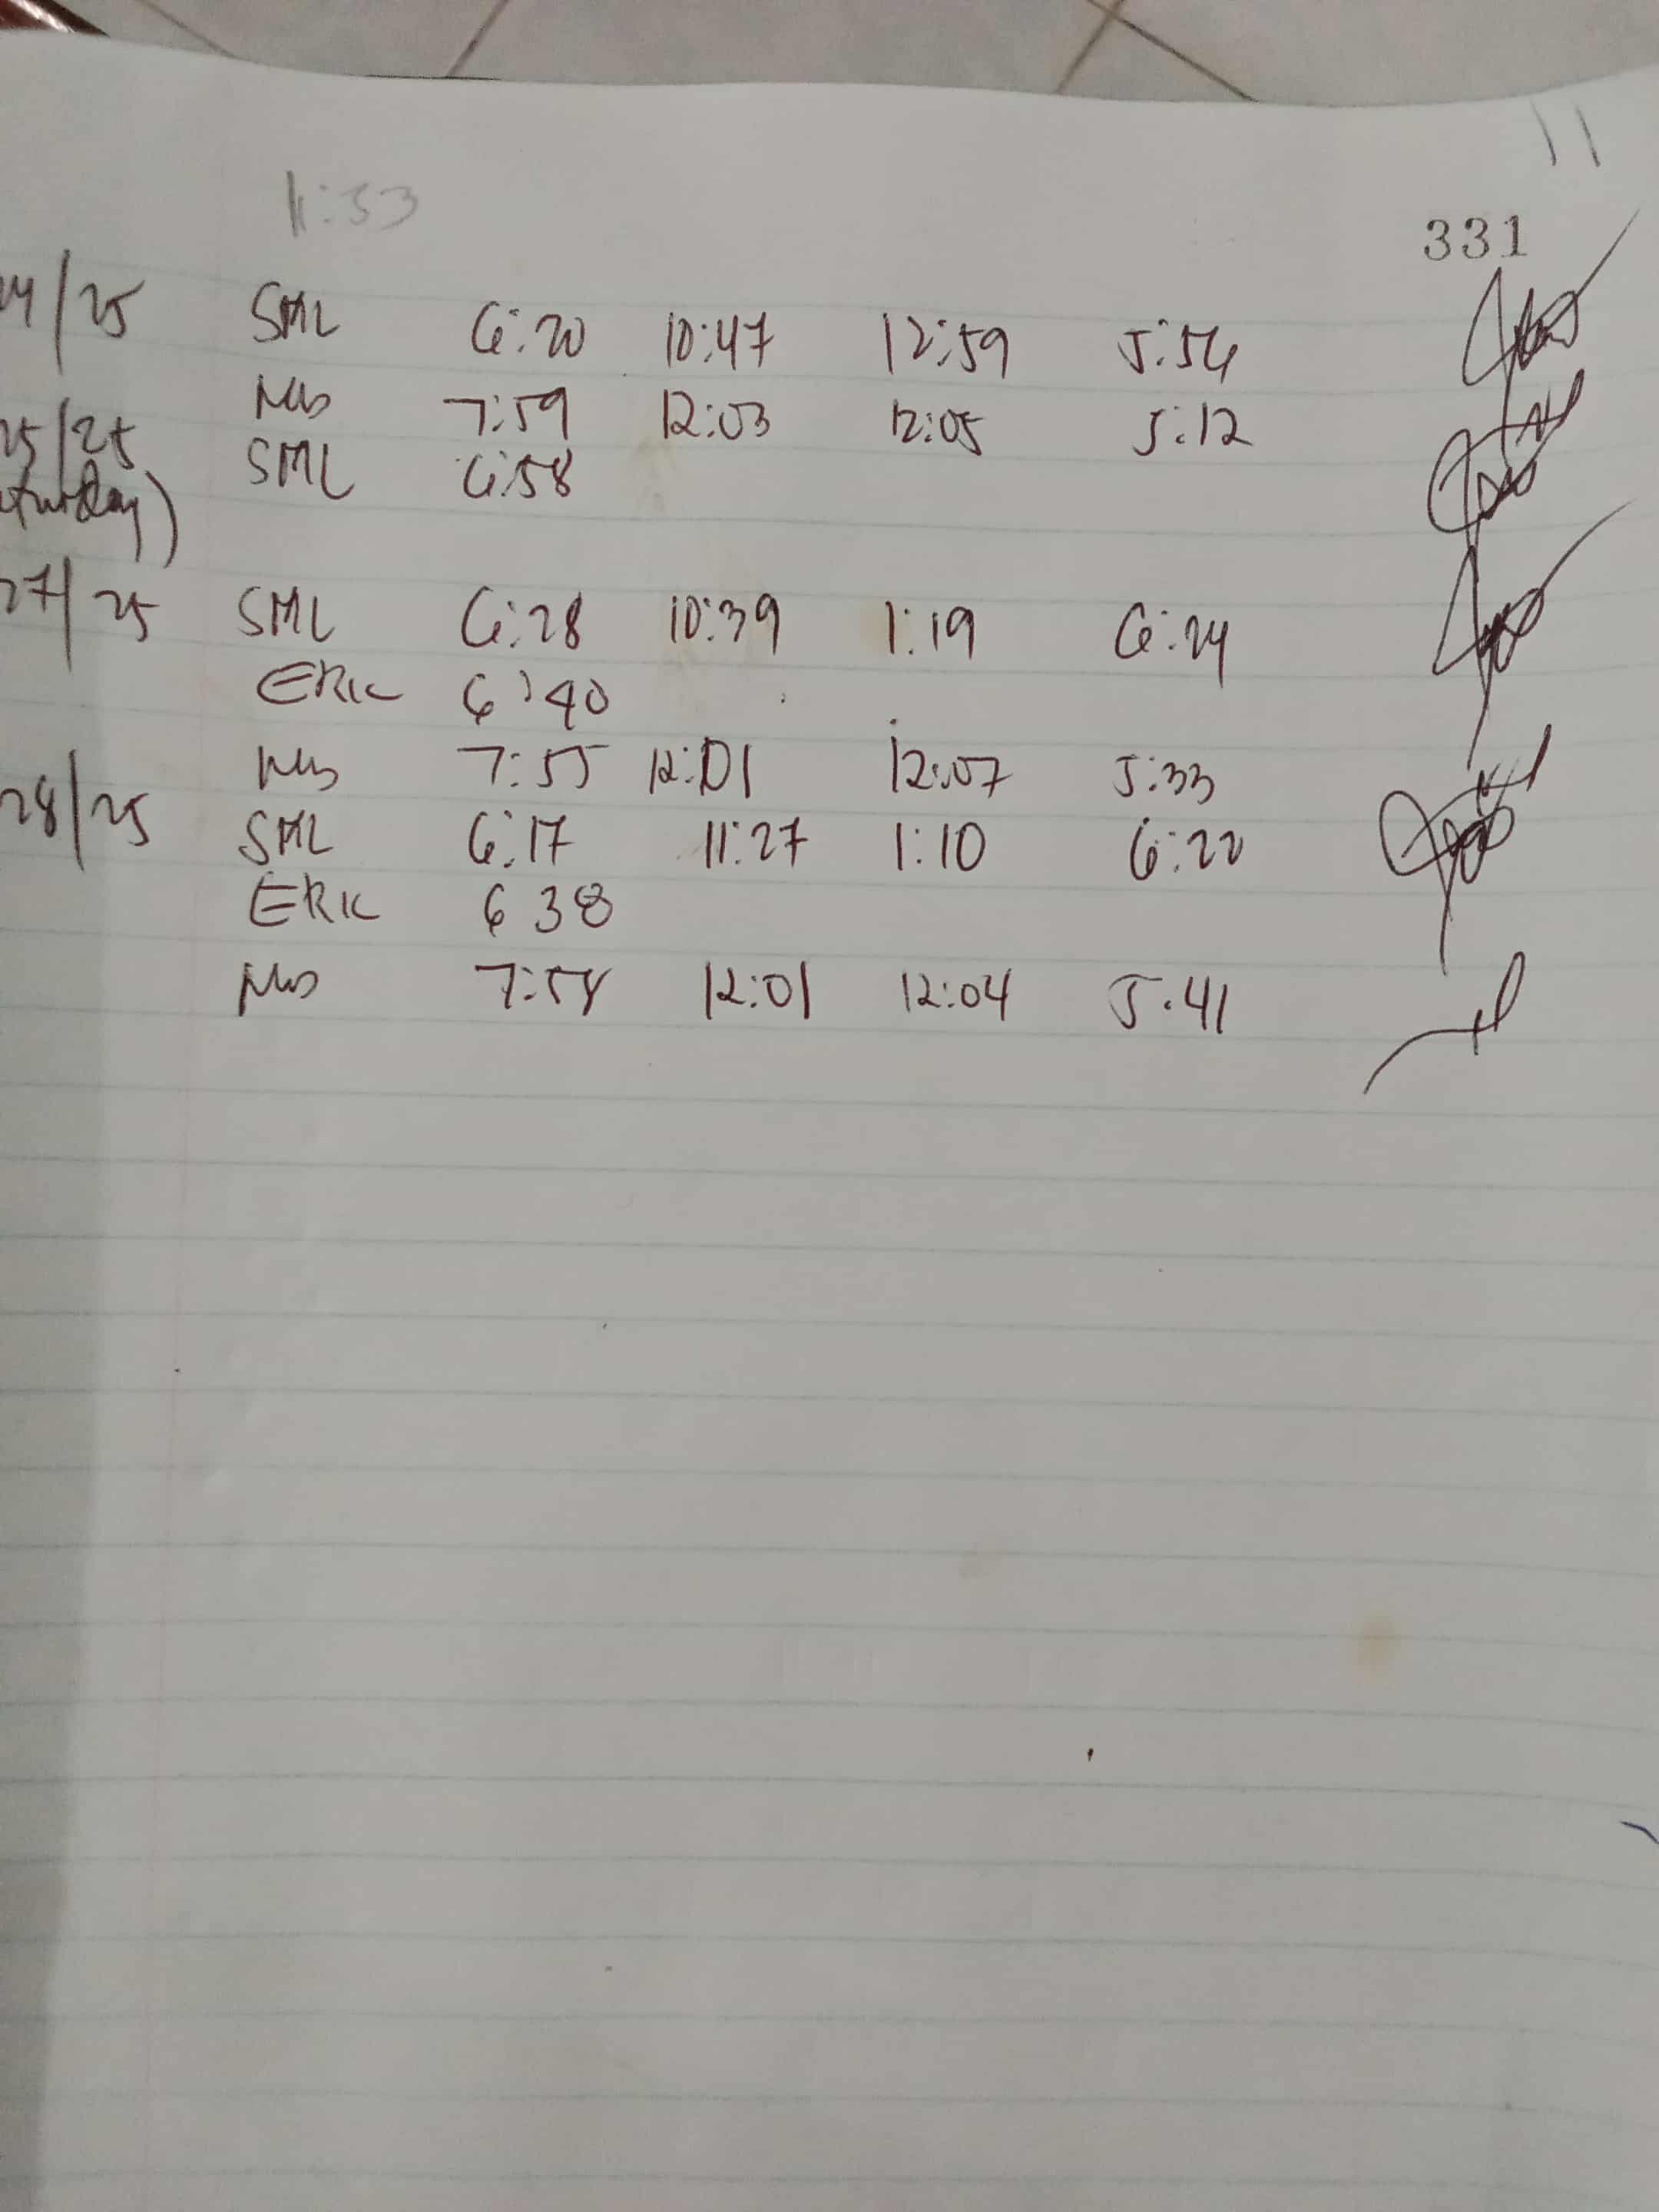 11
11:33
331
24/25 SML 6:20 10:47 12:59 5:56
7:59 12:03 12:05 5:12
25/25 SML 6:58
27/25 SML 6:28 10:39 1:19 6:24
ERIC 6:40
7:55 12:01 12:07 5:33
28/25 SML 6:17 11:27 1:10 6:22
ERIC 6 38
12:01 12:04 5.41